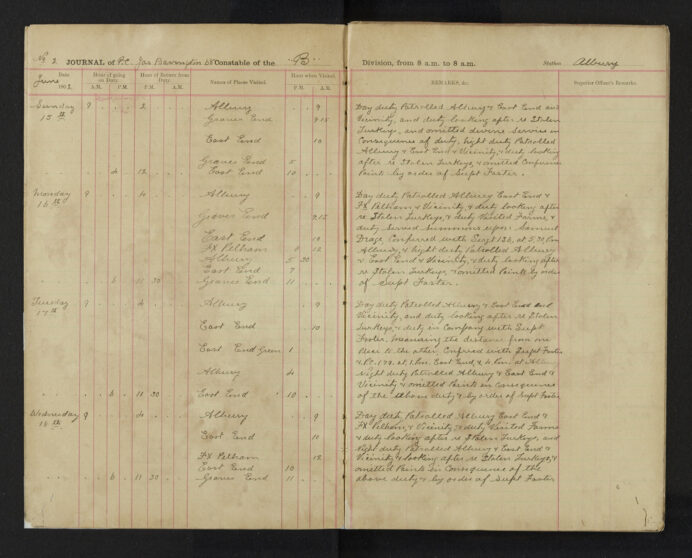 No. 2. JOURNAL of P.C. Jas Barrington 68 Constable of the "B" Division, from 8 a.m. to 8 a.m. Station Albury
Date Hour of going on Duty. Hour of Return from Duty. Names of Places Visited. Hour when Visited. REMARKS, &c. Superior Officer's Remarks.
June 1902. A.M. P.M. A.M. P.M. P.M. A.M.
Sunday 9 2 Albury 9 Day duty Patrolled Albury & East End and
15th Graves End 9.15 Vicinity, and duty looking after re Stolen
Turkeys, and omitted devine Service in
East End 10 Consequence of duty, Night duty Patrolled
Albury & East End & Vicinity, & duty looking
Graves End 8 after re Stolen Turkeys, & omitted Conference
4 12 East End 10 Point by order of Supt Foster.
Monday 9 4 Albury 9 Day duty Patrolled Albury East End &
16th Fx Pelham, & Vicinity, & duty looking after
Graves End 9.15 re Stolen Turkeys, & duty Visited Farms, &
duty Served Summons upon Samuel
East End 10 Drage, Conferred with Sergt 136, at 5,30 pm
Fx Pelham 12 Albury, & Night duty Patrolled Albury
Albury 5 30 & East End & Vicinity, & duty looking after
East End 7 re Stolen Turkeys, & omitted Points by order
6 11 30 Graves End 11 of Supt Foster.
Tuesday 9 4 Albury 9 Day duty Patrolled Albury & East End and
17th Vicinity, and duty looking after re Stolen
East End 10 Turkeys, & duty in Company with Supt
Foster, measuring the distance from one
East End Green 1 place to the other, Conferred with Supt Foster
& P.C. 179, at 1. pm. East End, & 4. pm. at Albury
Albury 4 Night duty Patrolled Albury & East End &
Vicinity & omitted Points in Consequence
6 11 30 East End 10 of the above duty & by order of Supt Foster
Wednesday 9 4 Albury 9 Day duty Patrolled Albury East End &
18th Fx Pelham, & Vicinity, & duty Visited Farms
East End 10 & duty looking after re Stolen Turkeys, and
Night duty Patrolled Albury & East End &
Fx Pelham 12 Vicinity & looking after re Stolen Turkeys, &
East End 10 omitted Points in Consequence of the
6 11 30 Graves End 11 above duty & by order of Supt Foster